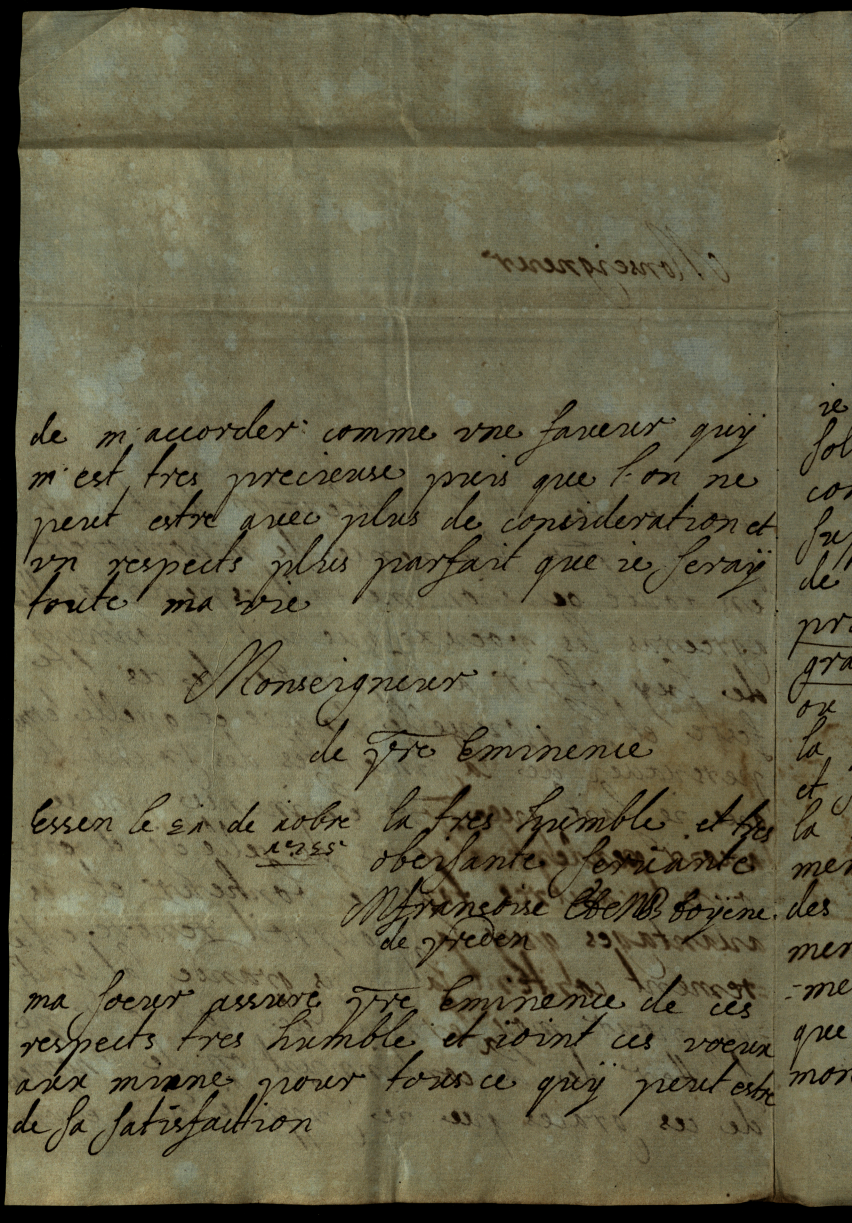 de m'accorder comme vne faueur quÿ
m'est tres precieuse puis que l'on ne
peut estre auec plus de consideration et
vn respects plus parfait que ie seraÿ
toute ma vie
Monseigneur
de vre Eminence
Essen le de xobre la tres humble et tres
obeissante seruante
Mfrançoise doÿene
de vreden
ma soeur assure vre Eminence de ces
respects tres humble et ioint ces voeux
aux minne pour tous ce quÿ peut estre
de sa satisfaction
ie
sol
con
sup
de
pri
gra
ou
la
et
la
men
des
mer
-me
que
mon